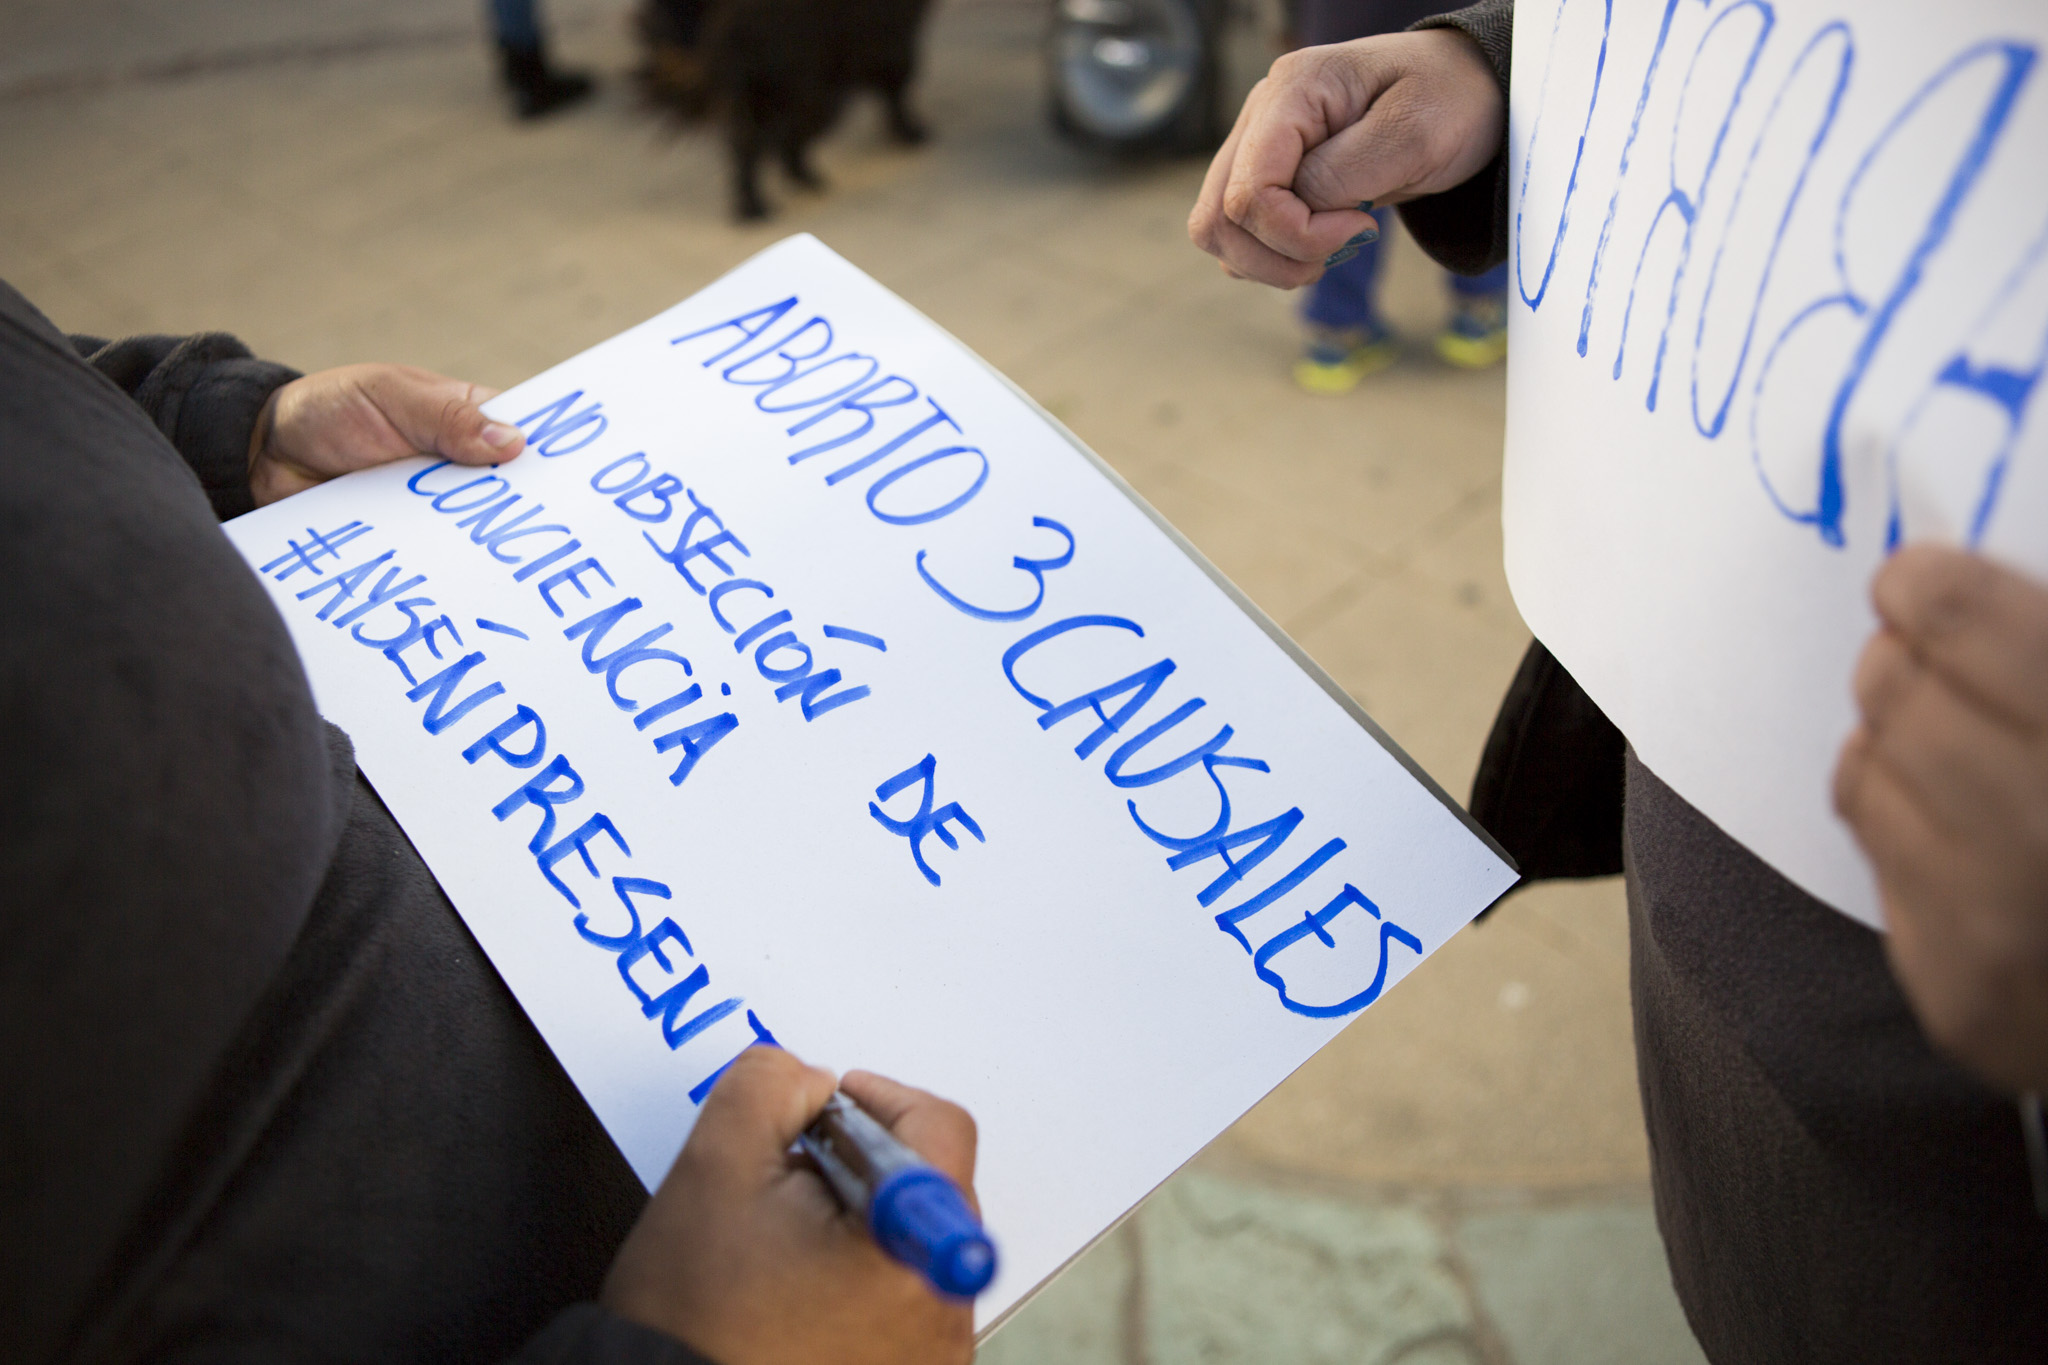 ABORTO 3 CAUSALES
NO OBJECIÓN DE
CONCIENCIA
#AYSÉN PRESENT
ABORTO